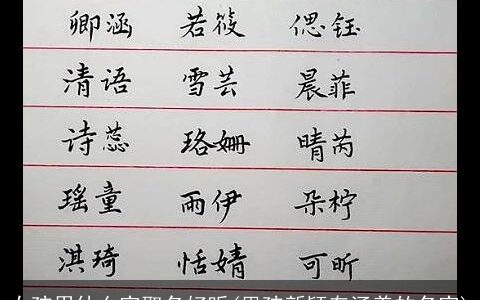 卿涵 若筱 偲钰
清语 雪芸 晨菲
诗蕊 珞姗 晴芮
瑶童 雨伊 朵柠
淇琦 恬婧 可昕
女孩用什么字取名好听(男孩新颖有涵养的名字)